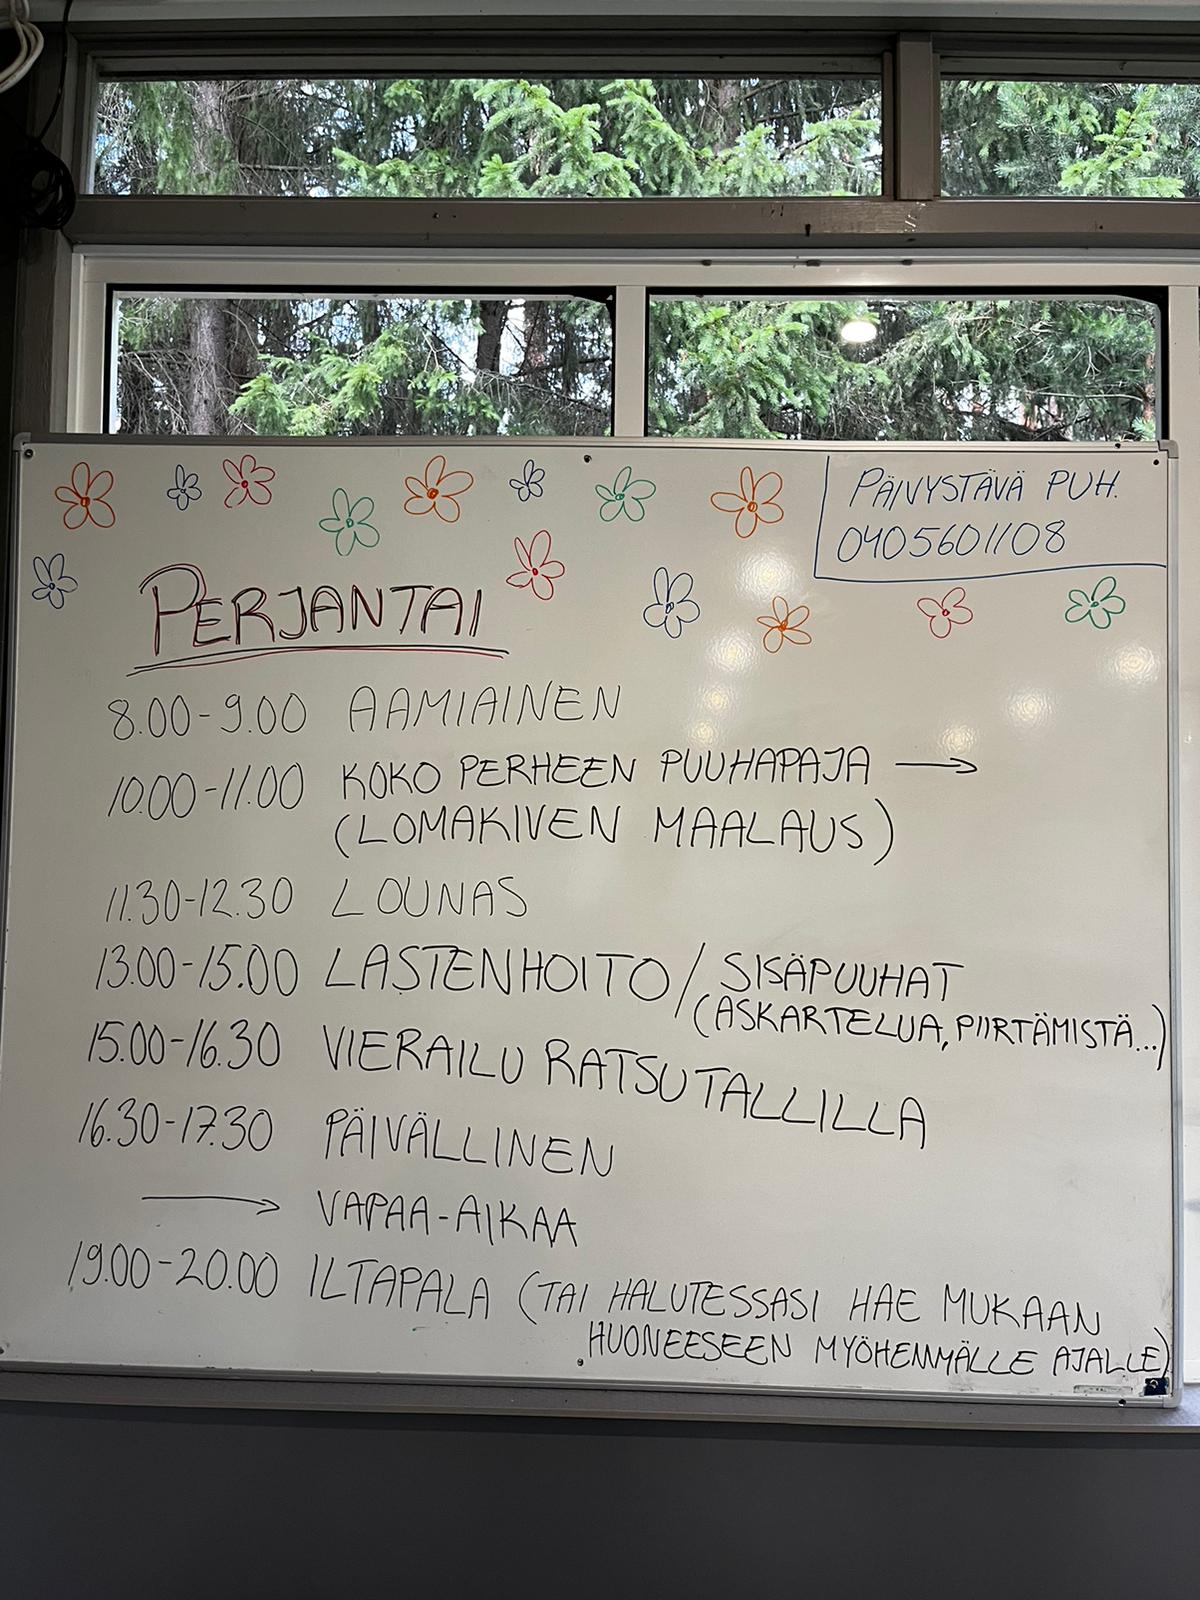 PÄIVYSTÄVÄ PUH.
0405601108
PERJANTAI
8.00-9.00 AAMIAINEN
10.00-11.00 KOKO PERHEEN PUUHAPAJA →
(LOMAKIVEN MAALAUS)
11.30-12.30 LOUNAS
13.00-15.00 LASTENHOITO/SISÄPUUHAT
(ASKARTELUA, PIIRTÄMISTÄ...)
15.00-16.30 VIERAILU RATSUTALLILLA
16.30-17.30 PÄIVÄLLINEN
→ VAPAA-AIKAA
19.00-20.00 ILTAPALA (TAI HALUTESSASI HAE MUKAAN
HUONEESEEN MYÖHEMMÄLLE AJALLE)